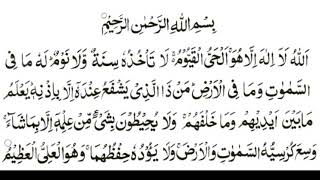 بِسْمِ اللهِ الرَّحْمٰنِ الرَّحِيْمِ
اَللهُ لَآ اِلٰهَ اِلَّا هُوَ ۚ اَلْحَيُّ الْقَيُّوْمُ ۚ لَا تَاْخُذُهٗ سِنَةٌ وَّلَا نَوْمٌ ؕ لَهٗ مَا فِى
السَّمٰوٰتِ وَمَا فِى الْاَرْضِ ؕ مَنْ ذَا الَّذِىْ يَشْفَعُ عِنْدَهٗٓ اِلَّا بِاِذْنِهٖ ؕ يَعْلَمُ
مَا بَيْنَ اَيْدِيْهِمْ وَمَا خَلْفَهُمْ ۚ وَلَا يُحِيْطُوْنَ بِشَىْءٍ مِّنْ عِلْمِهٖٓ اِلَّا بِمَا شَآءَ ۚ
وَسِعَ كُرْسِيُّهُ السَّمٰوٰتِ وَالْاَرْضَ ۚ وَلَا يَـُٔوْدُهٗ حِفْظُهُمَا ۚ وَهُوَ الْعَلِىُّ الْعَظِيْمُ